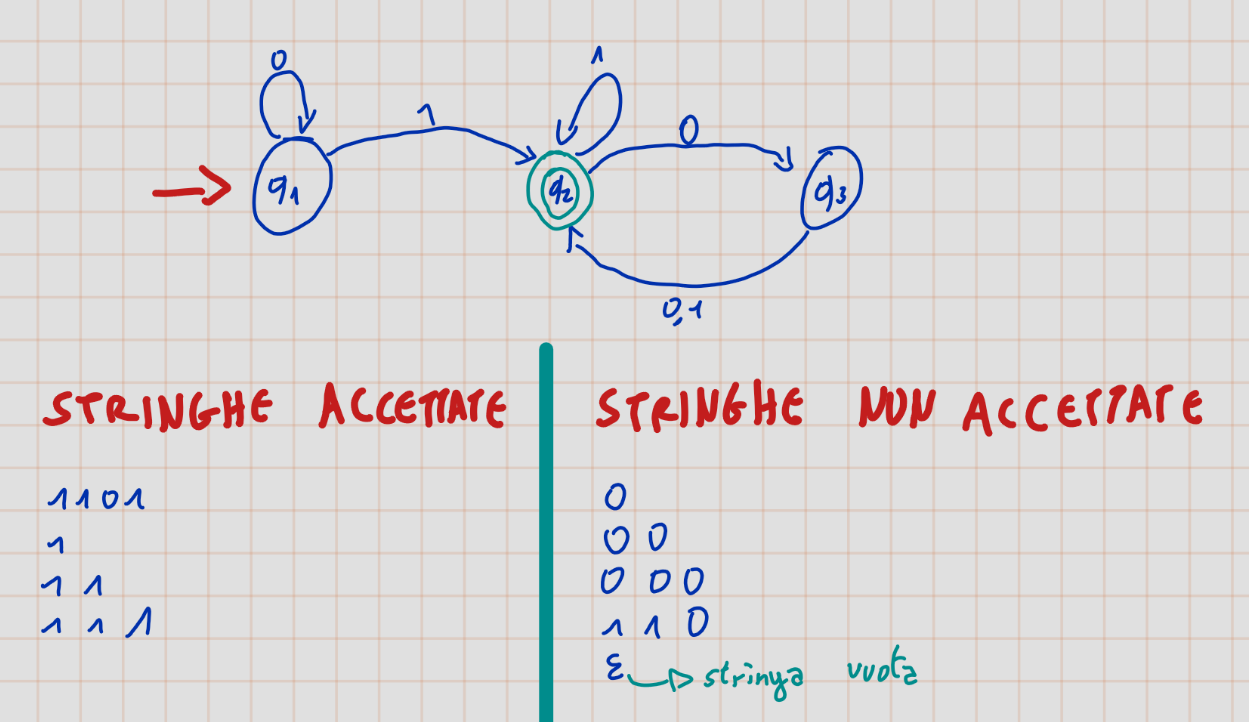 0
1
1
0
q1
q2
q3
0,1
STRINGHE ACCETTATE
1101
1
1 1
1 1 1
STRINGHE NON ACCETTATE
0
0 0
0 0 0
1 1 0
ε → stringa vuota